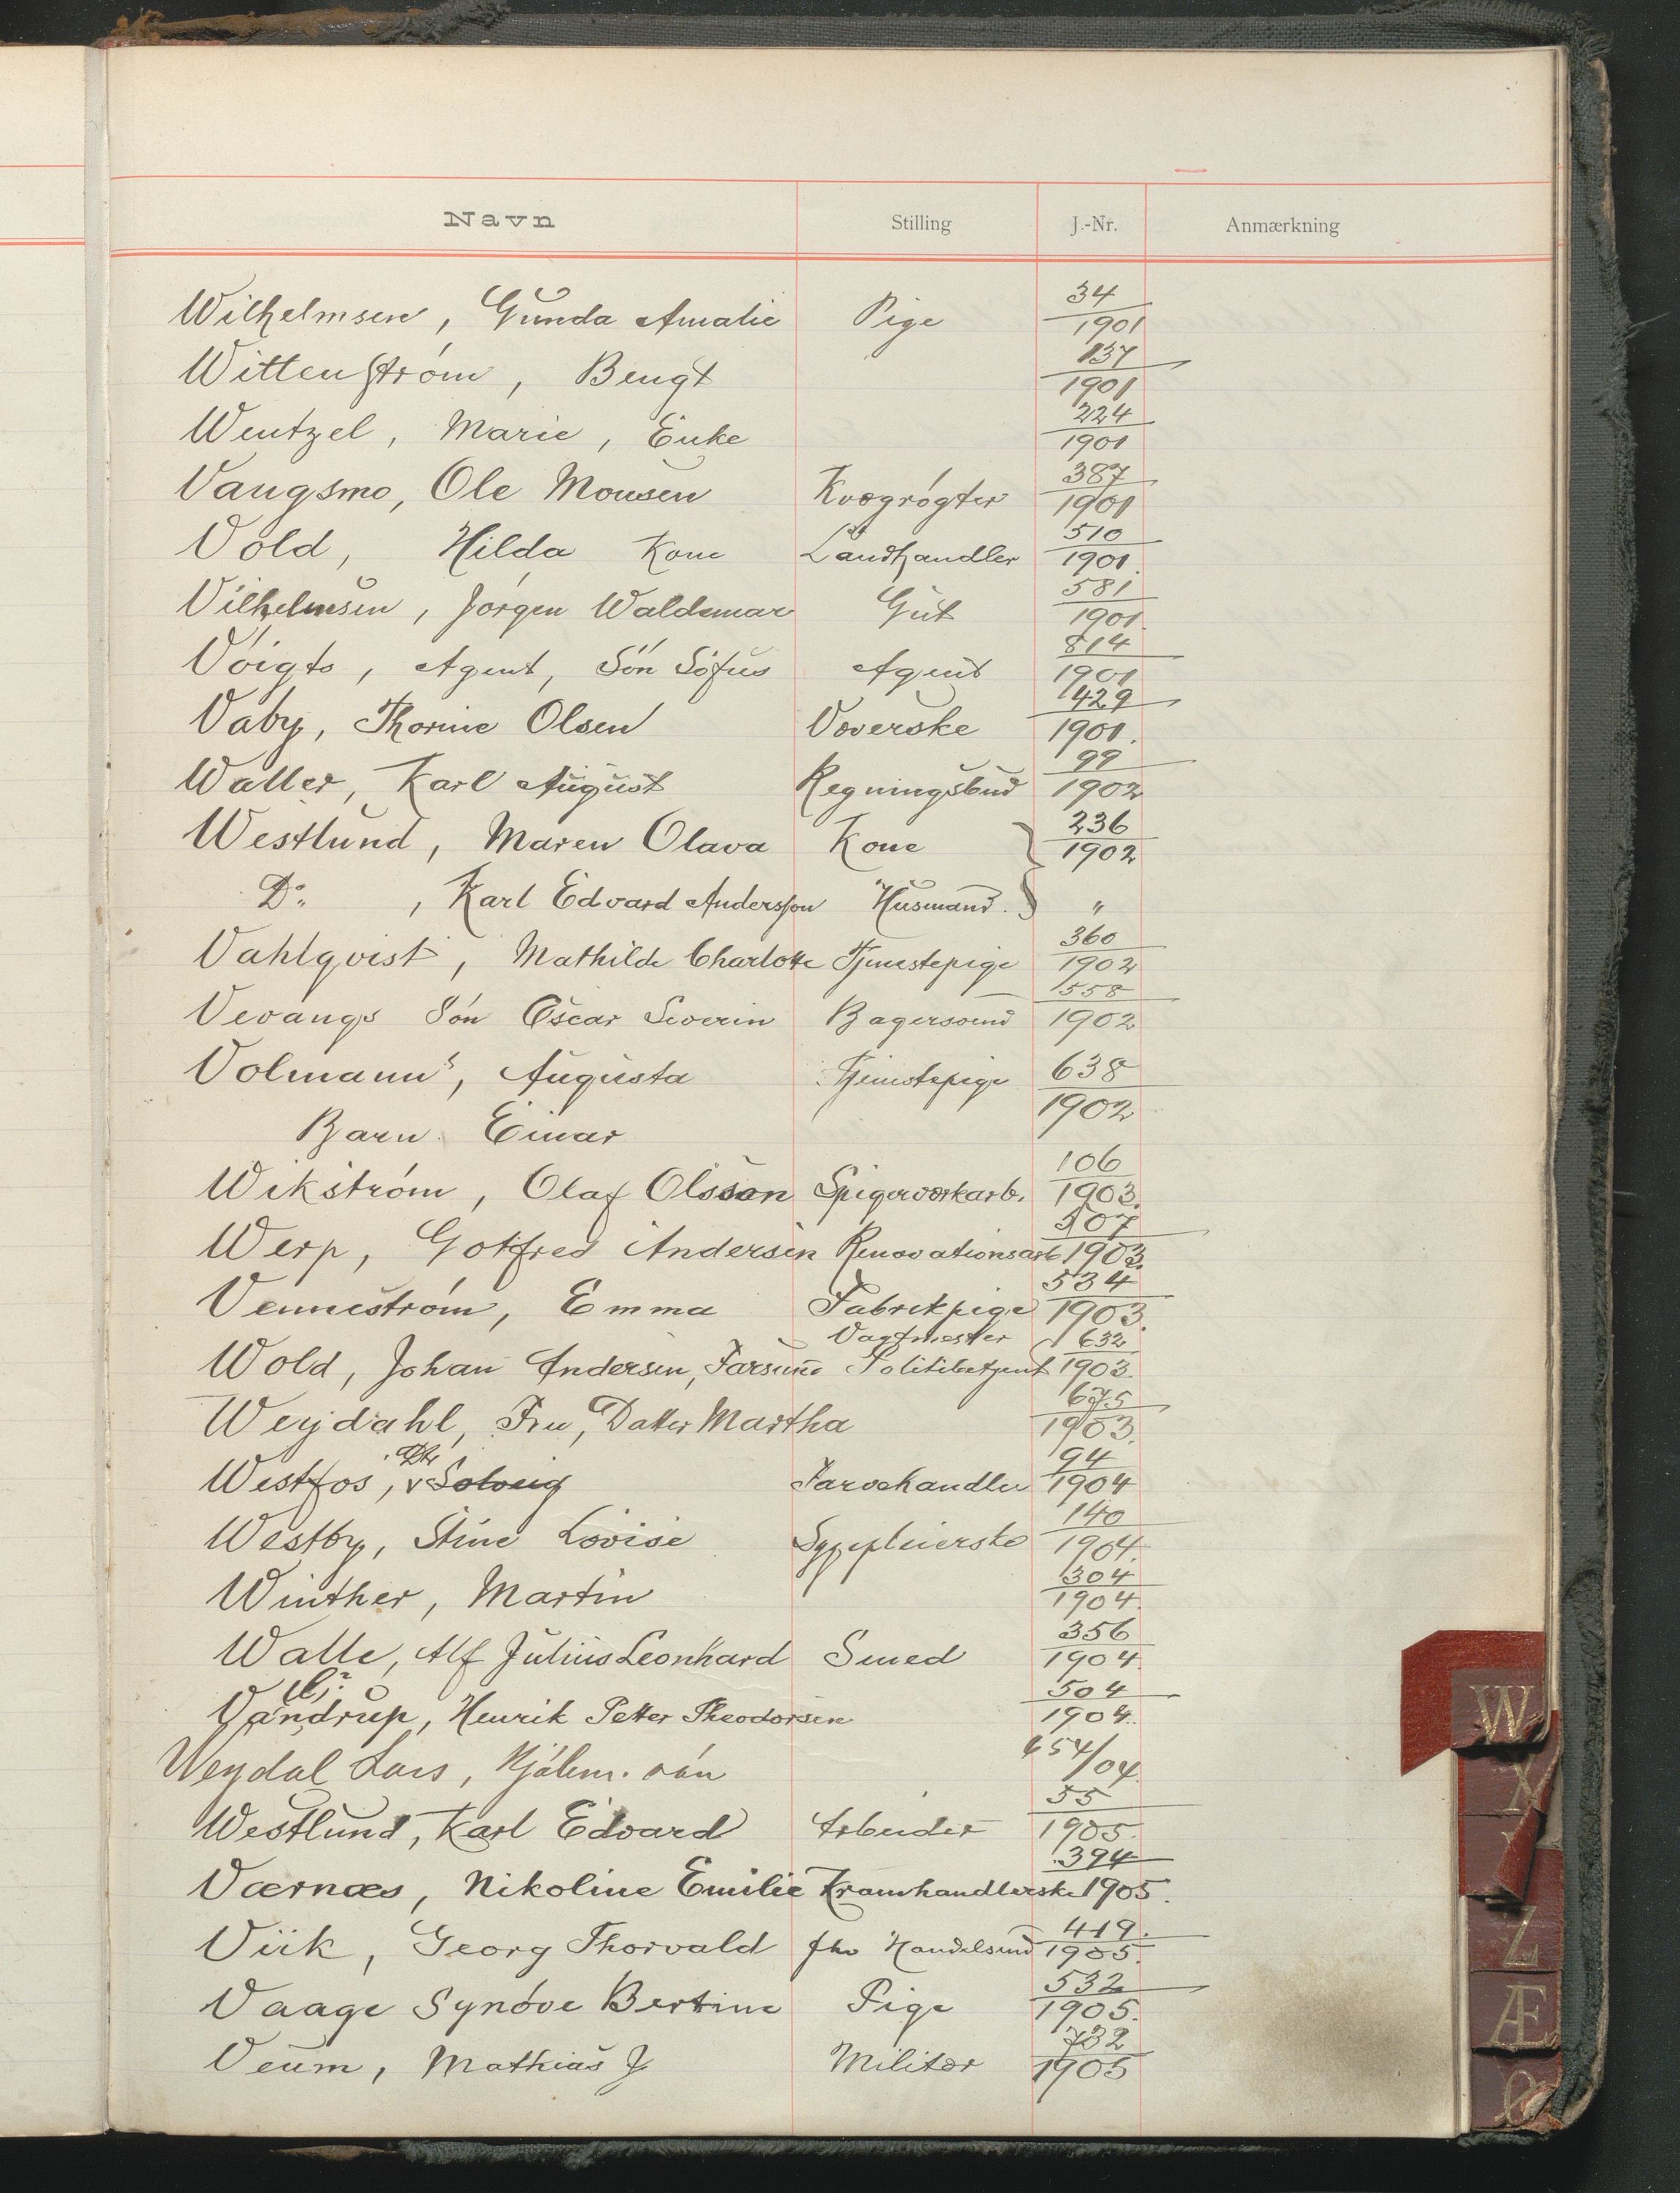 Navn Stilling J.-Nr. Anmærkning
Wilhelmsen, Gunda Amalie Pige 34/1901
Wittenström, Bengt 137/1901
Wentzel, Marie, Enke 224/1901
Vangsmo, Ole Monsen Kvægrøgter 387/1901
Vold, Hilda Kone Landhandler 510/1901.
Vilhelmsen, Jörgen Waldemar Gut 581/1901.
Voigts, Agent, Sön Sofus Agent 814/1901
Vaby, Thorine Olsen Væverske 429/1901.
Waller, Karl August Regningsbud 99/1902
Westlund, Maren Olava Kone 236/1902
Do , Karl Edvard Andersson Husmand. "
Vahlqvist, Mathilde Charlotte Tjenestepige 360/1902
Vevangs Sön Oscar Severin Bagersvend 558/1902
Volmanns, Augusta Tjenestepige 638/1902
Barn Einar
Wikström, Olaf Olsson Spigerværkarb. 106/1903.
Werp, Gotfred Andersen Renovationsarb 507/1903.
Venneström, Emma Fabrikpige 534/1903.
Vagtmester
Wold, Johan Andersen, Farsund Politibetjent 632/1903.
Weydahl, Fru, Datter Martha 675/1903.
Westfos, Solveig Farvehandler 94/1904
Westby, Stine Lovise Sygepleierske 140/1904.
Winther, Martin 304/1904.
Walle, Alf Julius Leonhard Smed 356/1904.
Vandrup, Henrik Petter Theodorsen 504/1904.
Weydal Lars, Hjalm. sön 654/04
Westlund, Karl Edvard Arbeider 55/1905.
Værnæs, Nikoline Emilie Kramhandlerske 394/1905.
Viik, Georg Thorvald fhv Handelsmd 419/1905.
Vaage Synöve Bertine Pige 532/1905.
Veum, Mathias J Militær 732/1905
W
X
Z
Æ
Ø